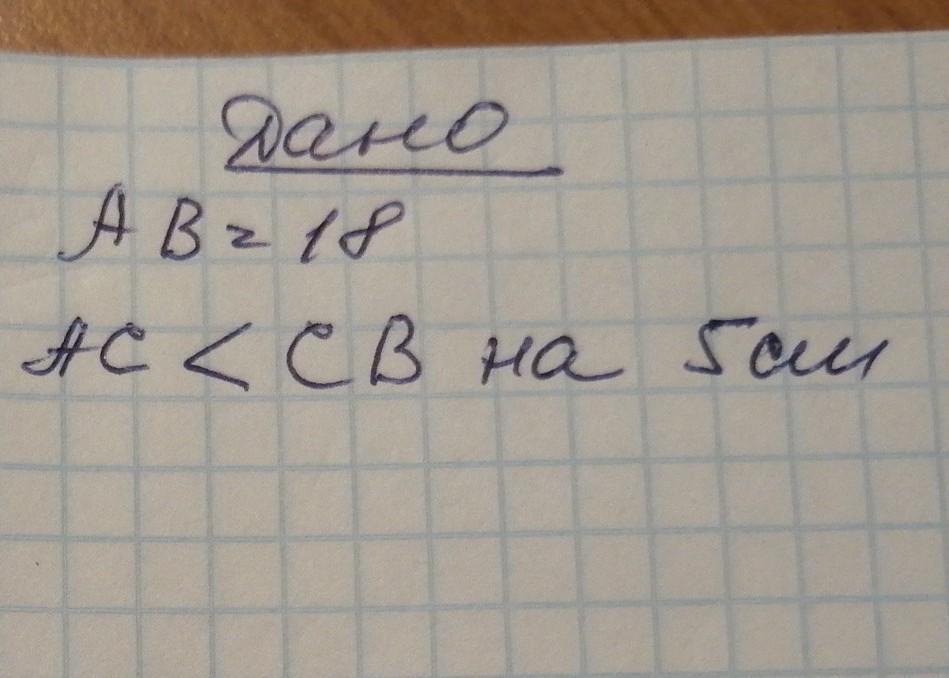 Дано
AB = 18
AC < CB на 5см